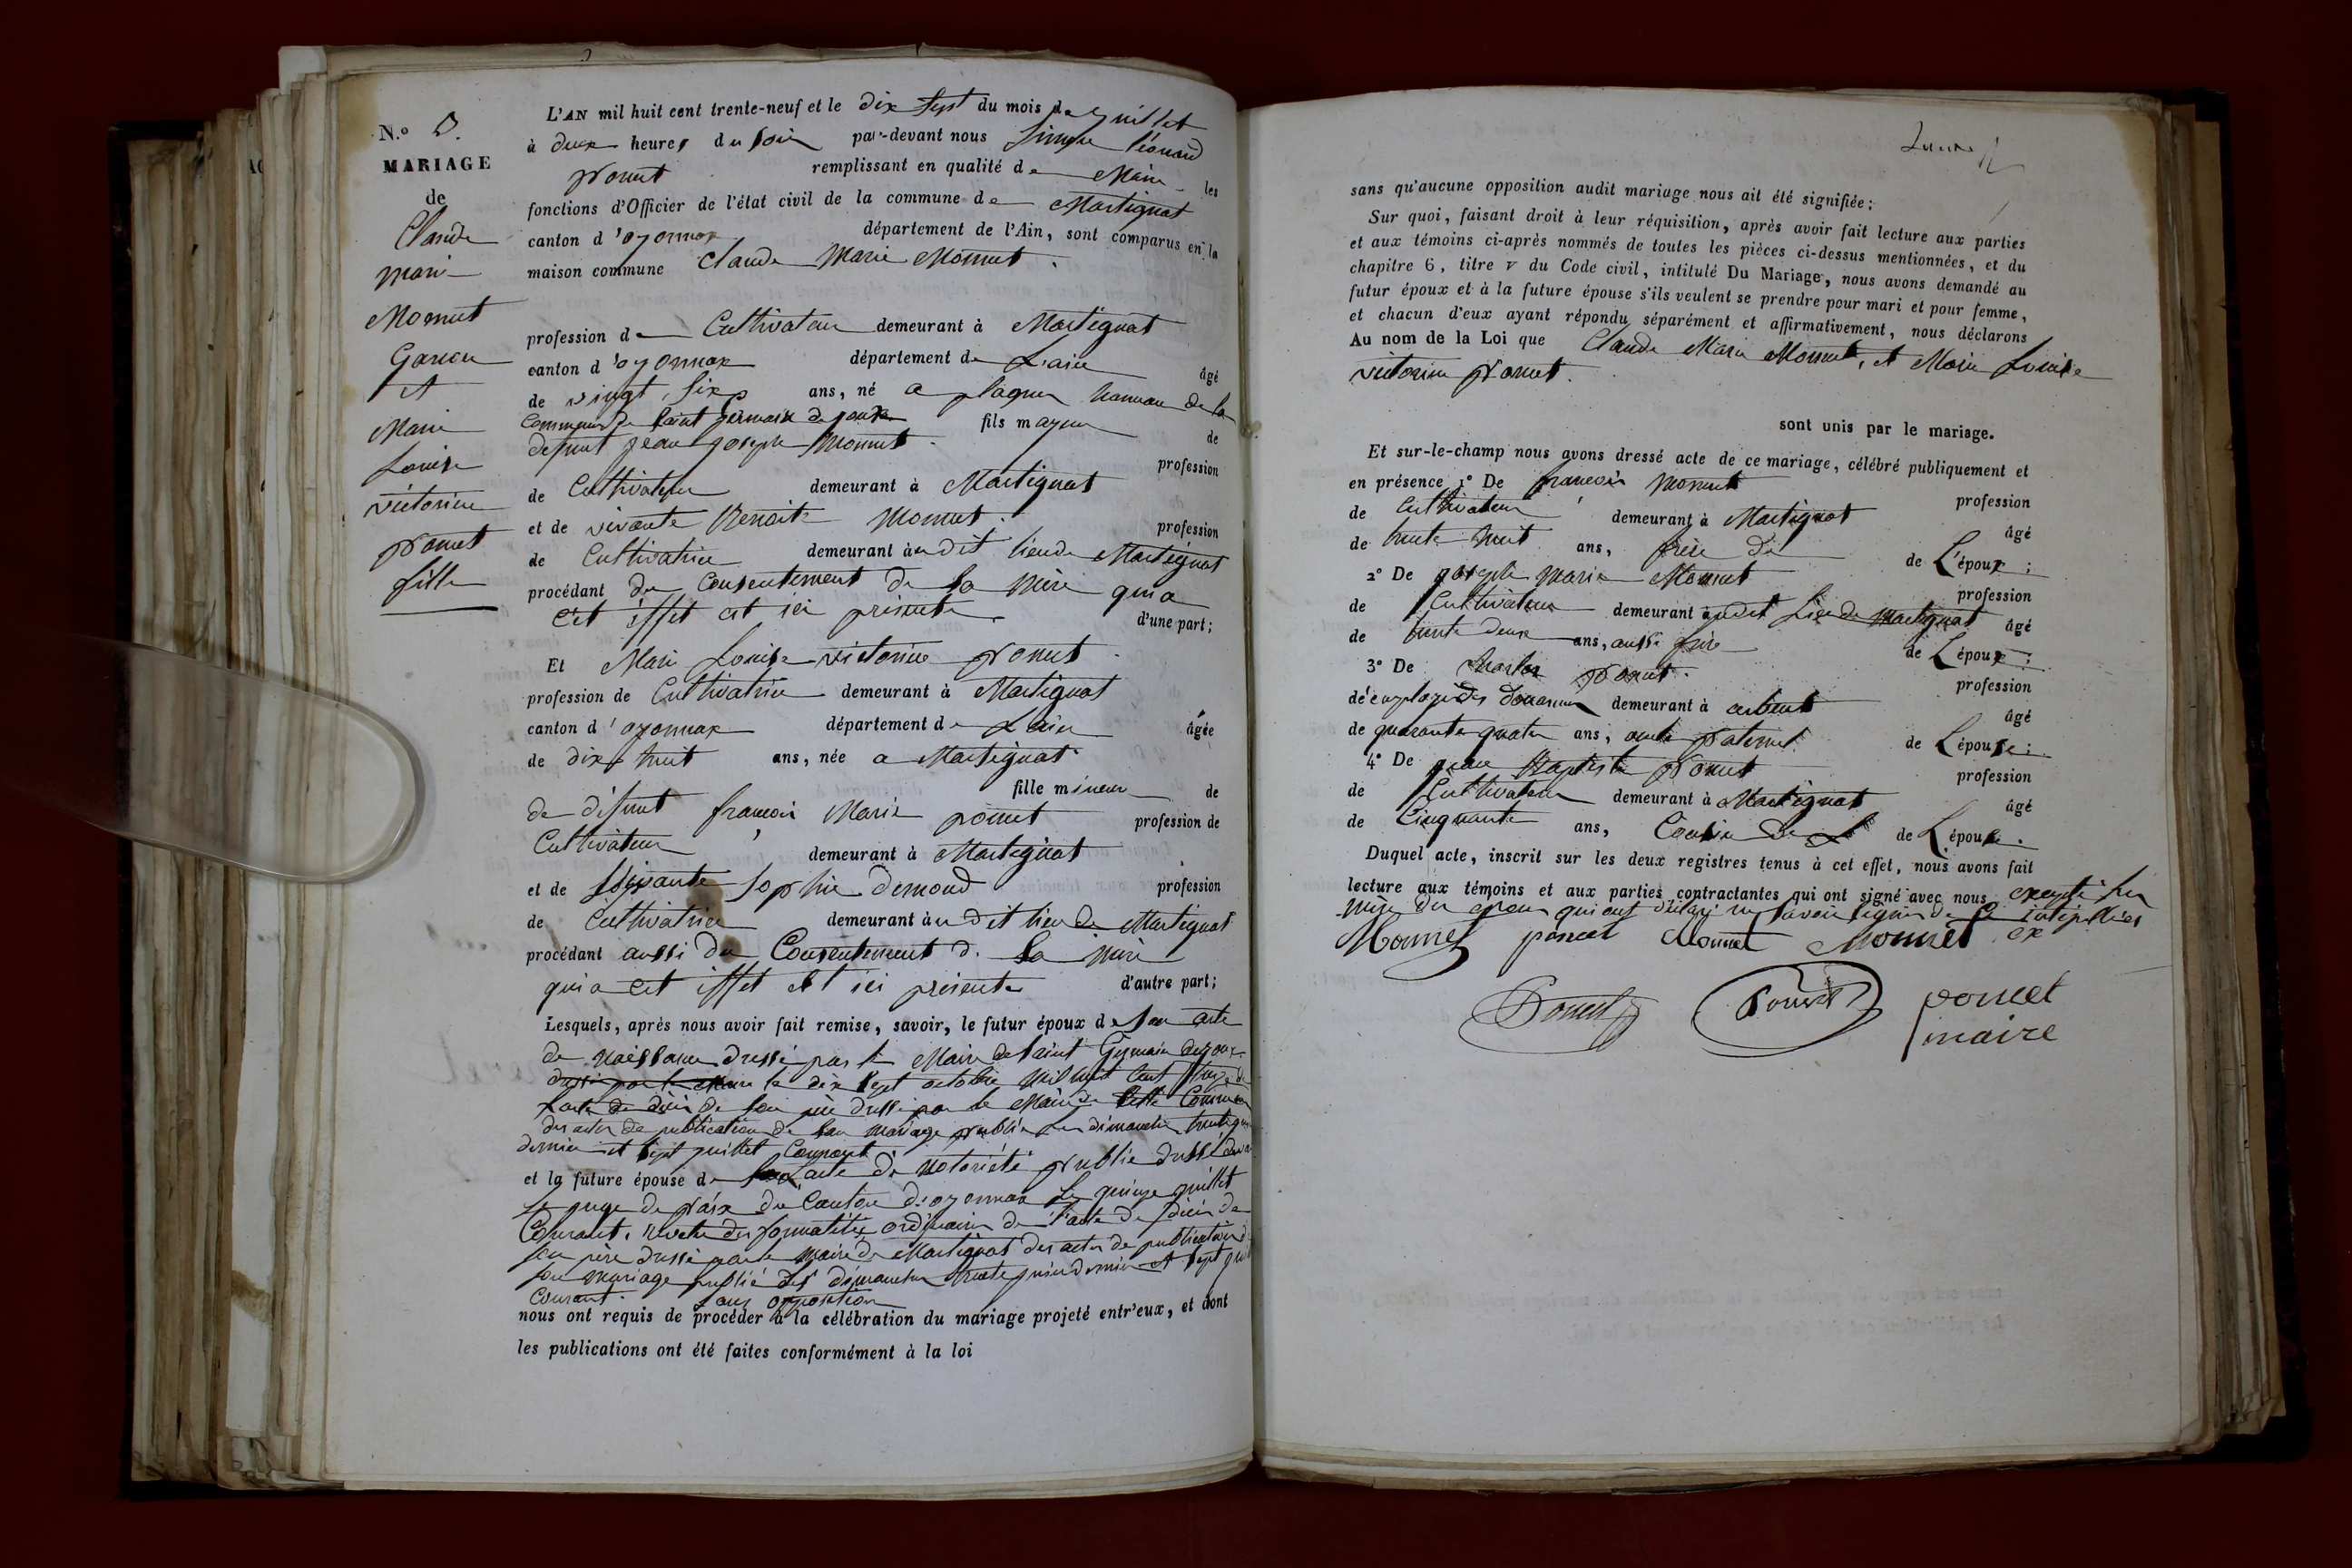 N.º 5.
MARIAGE
de
Claude
marie
Monnet
Garçon
et
Marie
Louise
victorine
poncet
fille
L'AN mil huit cent trente-neuf et le dix sept du mois de juillet
à deux heures du soir par-devant nous Simon léonard
poncet remplissant en qualité de Maire les
fonctions d'Officier de l'état civil de la commune de Martignat
canton d'oyonnax département de l'Ain, sont comparus en la
maison commune Claude Marie Monnet.
profession de Cultivateur demeurant à Martignat
canton d'oyonnax département de L'ain âgé
de vingt six ans, né a plagnes hameau de la
Commune de Saint germain de joux fils majeur de
defunt jean joseph Monnet. profession
de Cultivateur demeurant à Martignat
et de vivante Benoite Monnet. profession
de Cultivatrice demeurant au dit lieu de Martignat
procédant du Consentement de sa mère qui a
cet effet est ici présente d'une part;
Et Marie Louise victorine poncet.
profession de Cultivatrice demeurant à Martignat
canton d'oyonnax département de L'ain âgée
de dix huit ans, née a Martignat
fille mineure de
de défunt françois Marie poncet profession de
Cultivateur demeurant à Martignat
et de vivante Sophie demond profession
de Cultivatrice demeurant au dit lieu de Martignat
procédant aussi du Consentement de sa mère
qui a cet effet est ici présente d'autre part;
Lesquels, après nous avoir fait remise, savoir, le futur époux de son acte
de naissance dressé par le Maire de Saint Germain de joux
dressé par le maire le dix sept octobre mil huit cent
l'acte de décès de son père dressé par le Maire de cette Commune
des actes de publication de son mariage publié les dimanches trente juin
dernier et sept juillet Courant
et la future épouse de l'acte de notoriété publie dressé
le juge de paix du Canton d'oyonnax le quinze juillet
Courant, revetu des formalités ordinaires de l'acte de décès de
son père dressé par le maire de Martignat des actes de publication de
son mariage publié les dimanches trente juin dernier et sept
Courant. sans opposition
nous ont requis de procéder à la célébration du mariage projeté entr'eux, et dont
les publications ont été faites conformément à la loi
sans qu'aucune opposition audit mariage nous ait été signifiée;
Sur quoi, faisant droit à leur réquisition, après avoir fait lecture aux parties
et aux témoins ci-après nommés de toutes les pièces ci-dessus mentionnées, et du
chapitre 6, titre v du Code civil, intitulé Du Mariage, nous avons demandé au
futur époux et à la future épouse s'ils veulent se prendre pour mari et pour femme,
et chacun d'eux ayant répondu séparément et affirmativement, nous déclarons
Au nom de la Loi que Claude Marie Monnet, et Marie Louise
victorine poncet.
sont unis par le mariage.
Et sur-le-champ nous avons dressé acte de ce mariage, célébré publiquement et
en présence 1º De françois Monnet profession
de Cultivateur demeurant à Martignat âgé
de trente huit ans, frère de de L'époux;
2º De joseph Marie Monnet profession
de Cultivateur demeurant audit lieu de Martignat âgé
de trente deux ans, aussi frère de L'époux;
3º De Charles poncet. profession
d'employé des douanes demeurant à arbent âgé
de quarante quatre ans, oncle paternel de L'épouse;
4º De jean Baptiste poncet profession
de Cultivateur demeurant à Martignat âgé
de Cinquante ans, Cousin de L'épouse.
Duquel acte, inscrit sur les deux registres tenus à cet effet, nous avons fait
lecture aux témoins et aux parties contractantes qui ont signé avec nous excepté les
mère des époux qui ont déclaré ne savoir signer de ce
Monnet poncet Monnet Monnet
Poncet Poncet poncet
maire